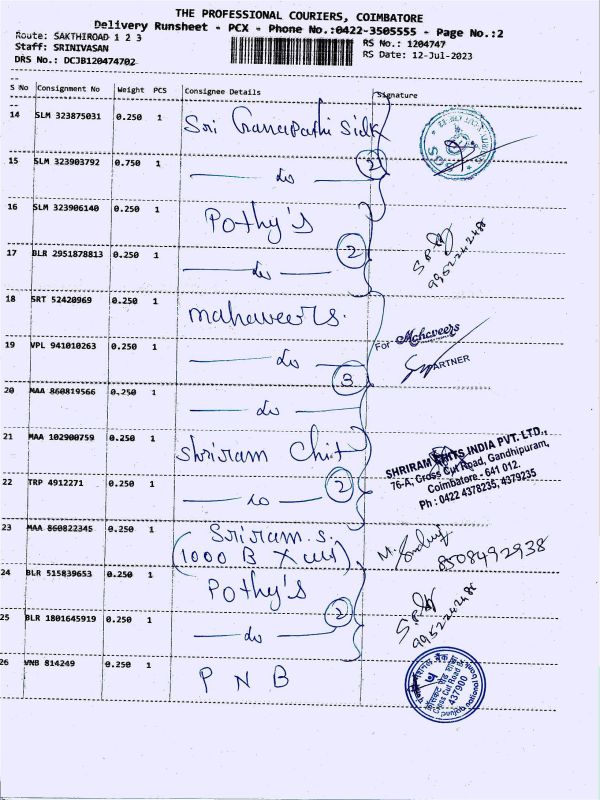 THE PROFESSIONAL COURIERS, COIMBATORE
Delivery Runsheet - PCX - Phone No.:0422-3505555 - Page No.:2
Route: SAKTHIROAD 1 2 3
RS No.: 1204747
Staff: SRINIVASAN
RS Date: 12-Jul-2023
DRS No.: DCJB120474702
S No Consignment No Weight PCS Consignee Details Signature
14 SLM 323875031 0.250 1 Sri Ganapathi Silk
15 SLM 323903792 0.750 1 do 2
16 SLM 323906140 0.250 1 Pothy's
17 BLR 2951878813 0.250 1 do 2
9952242486
18 SRT 52420969 0.250 1 mahaveers.
For Mahaveers
19 VPL 941010263 0.250 1 do
PARTNER
3
20 MAA 860819566 0.250 1 do
21 MAA 102900759 0.250 1 Shriram Chit
SHRIRAM CHITS INDIA PVT. LTD.,
76-A, Cross Cut Road, Gandhipuram,
Coimbatore - 641 012.
Ph : 0422 4378235, 4379235
22 TRP 4912271 0.250 1 do 2
23 MAA 860822345 0.250 1 Sriram. S.
(1000 B X cut)
8508492938
24 BLR 515839653 0.250 1 Pothy's
2
9952242486
25 BLR 1801645919 0.250 1 do
26 VNB 814249 0.250 1 P N B
Cross Cut Road Br.
437900
punjab national bank